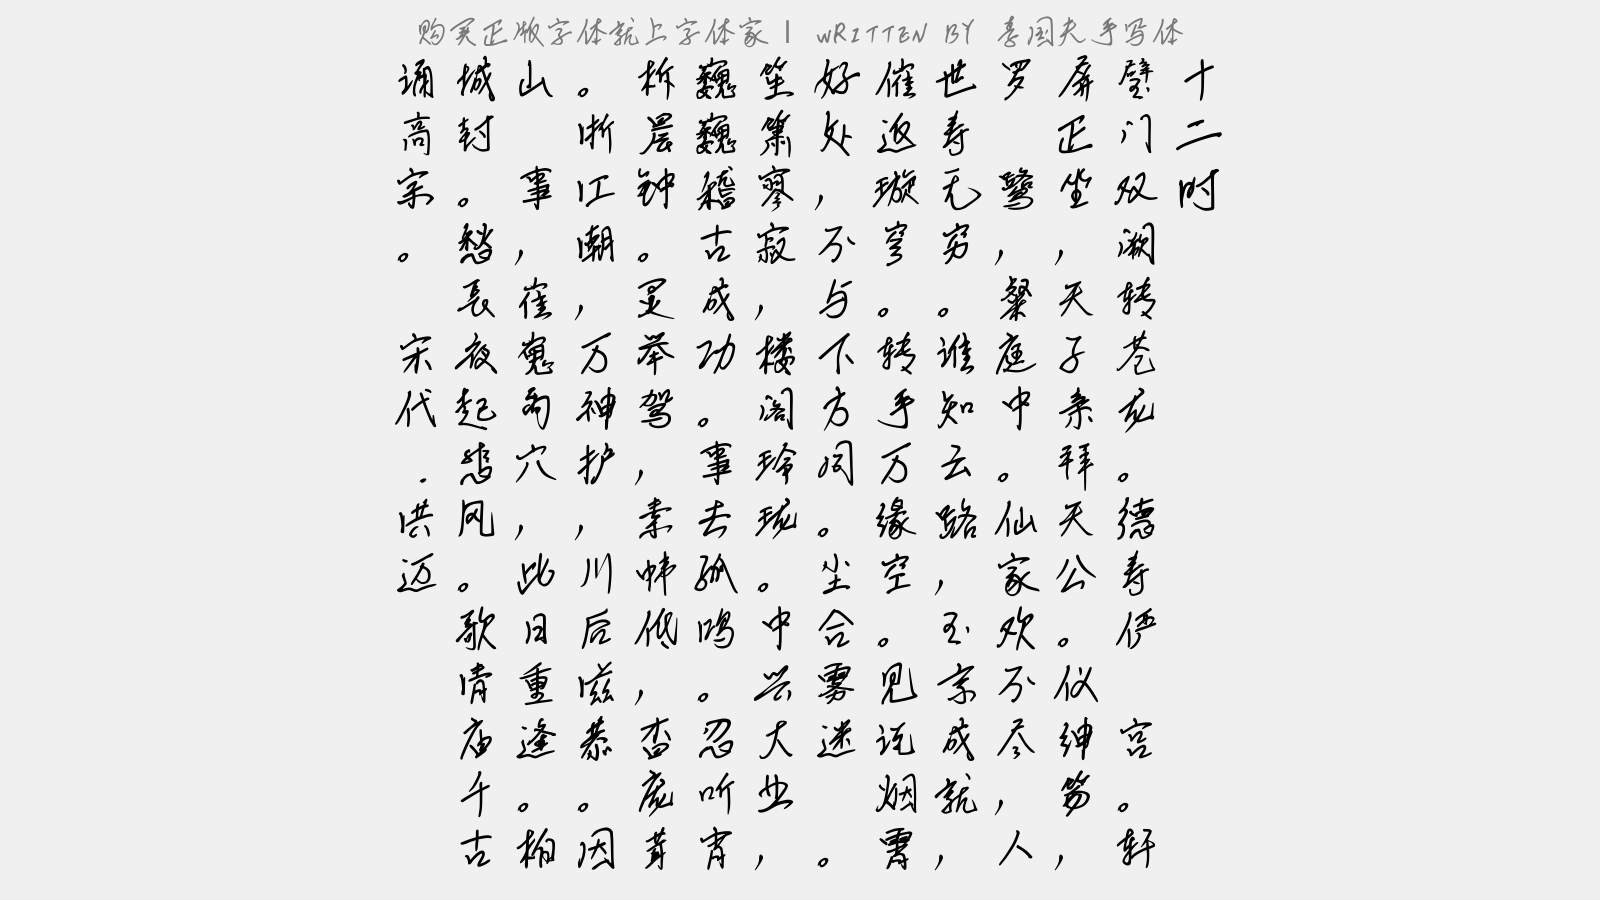 购买正版字体就上字体家 | WRITTEN BY 李国夫手写体
十二时
璧门双阙转苍龙。德寿俨 宫。轩
屏正坐，天子亲拜天公。仪绅笏，
罗 鹭，粲庭中。仙家欢不尽，人
世寿无穷。谁知云路，玉京成就，
催返璇穹。 转手万缘空。见说烟霄
好处，不与下方同。尘合雾迷 。
笙箫寥寂，楼阁玲珑。中兴大业，
巍巍稽古成功。事去孤鸣。忍听宵
柝晨钟。灵举驾，素帏低，杳庞茸
。浙江潮，万神护，川后滋恭。因
山 事，崔嵬禹穴，此日重逢。柏
城封。愁长夜起悲风。歌清庙千古
诵高宗。 宋代.洪迈